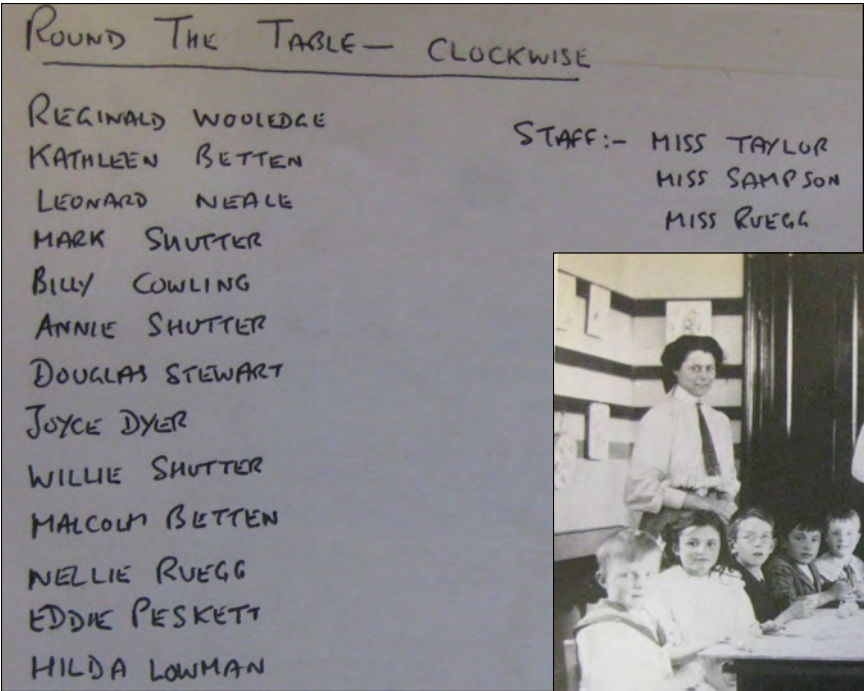 ROUND THE TABLE — CLOCKWISE
REGINALD WOOLEDGE
KATHLEEN BETTEN
LEONARD NEALE
MARK SHUTTER
BILLY COWLING
ANNIE SHUTTER
DOUGLAS STEWART
JOYCE DYER
WILLIE SHUTTER
MALCOLM BETTEN
NELLIE RUEGG
EDDIE PESKETT
HILDA LOWMAN
STAFF:- MISS TAYLOR
MISS SAMPSON
MISS RUEGG